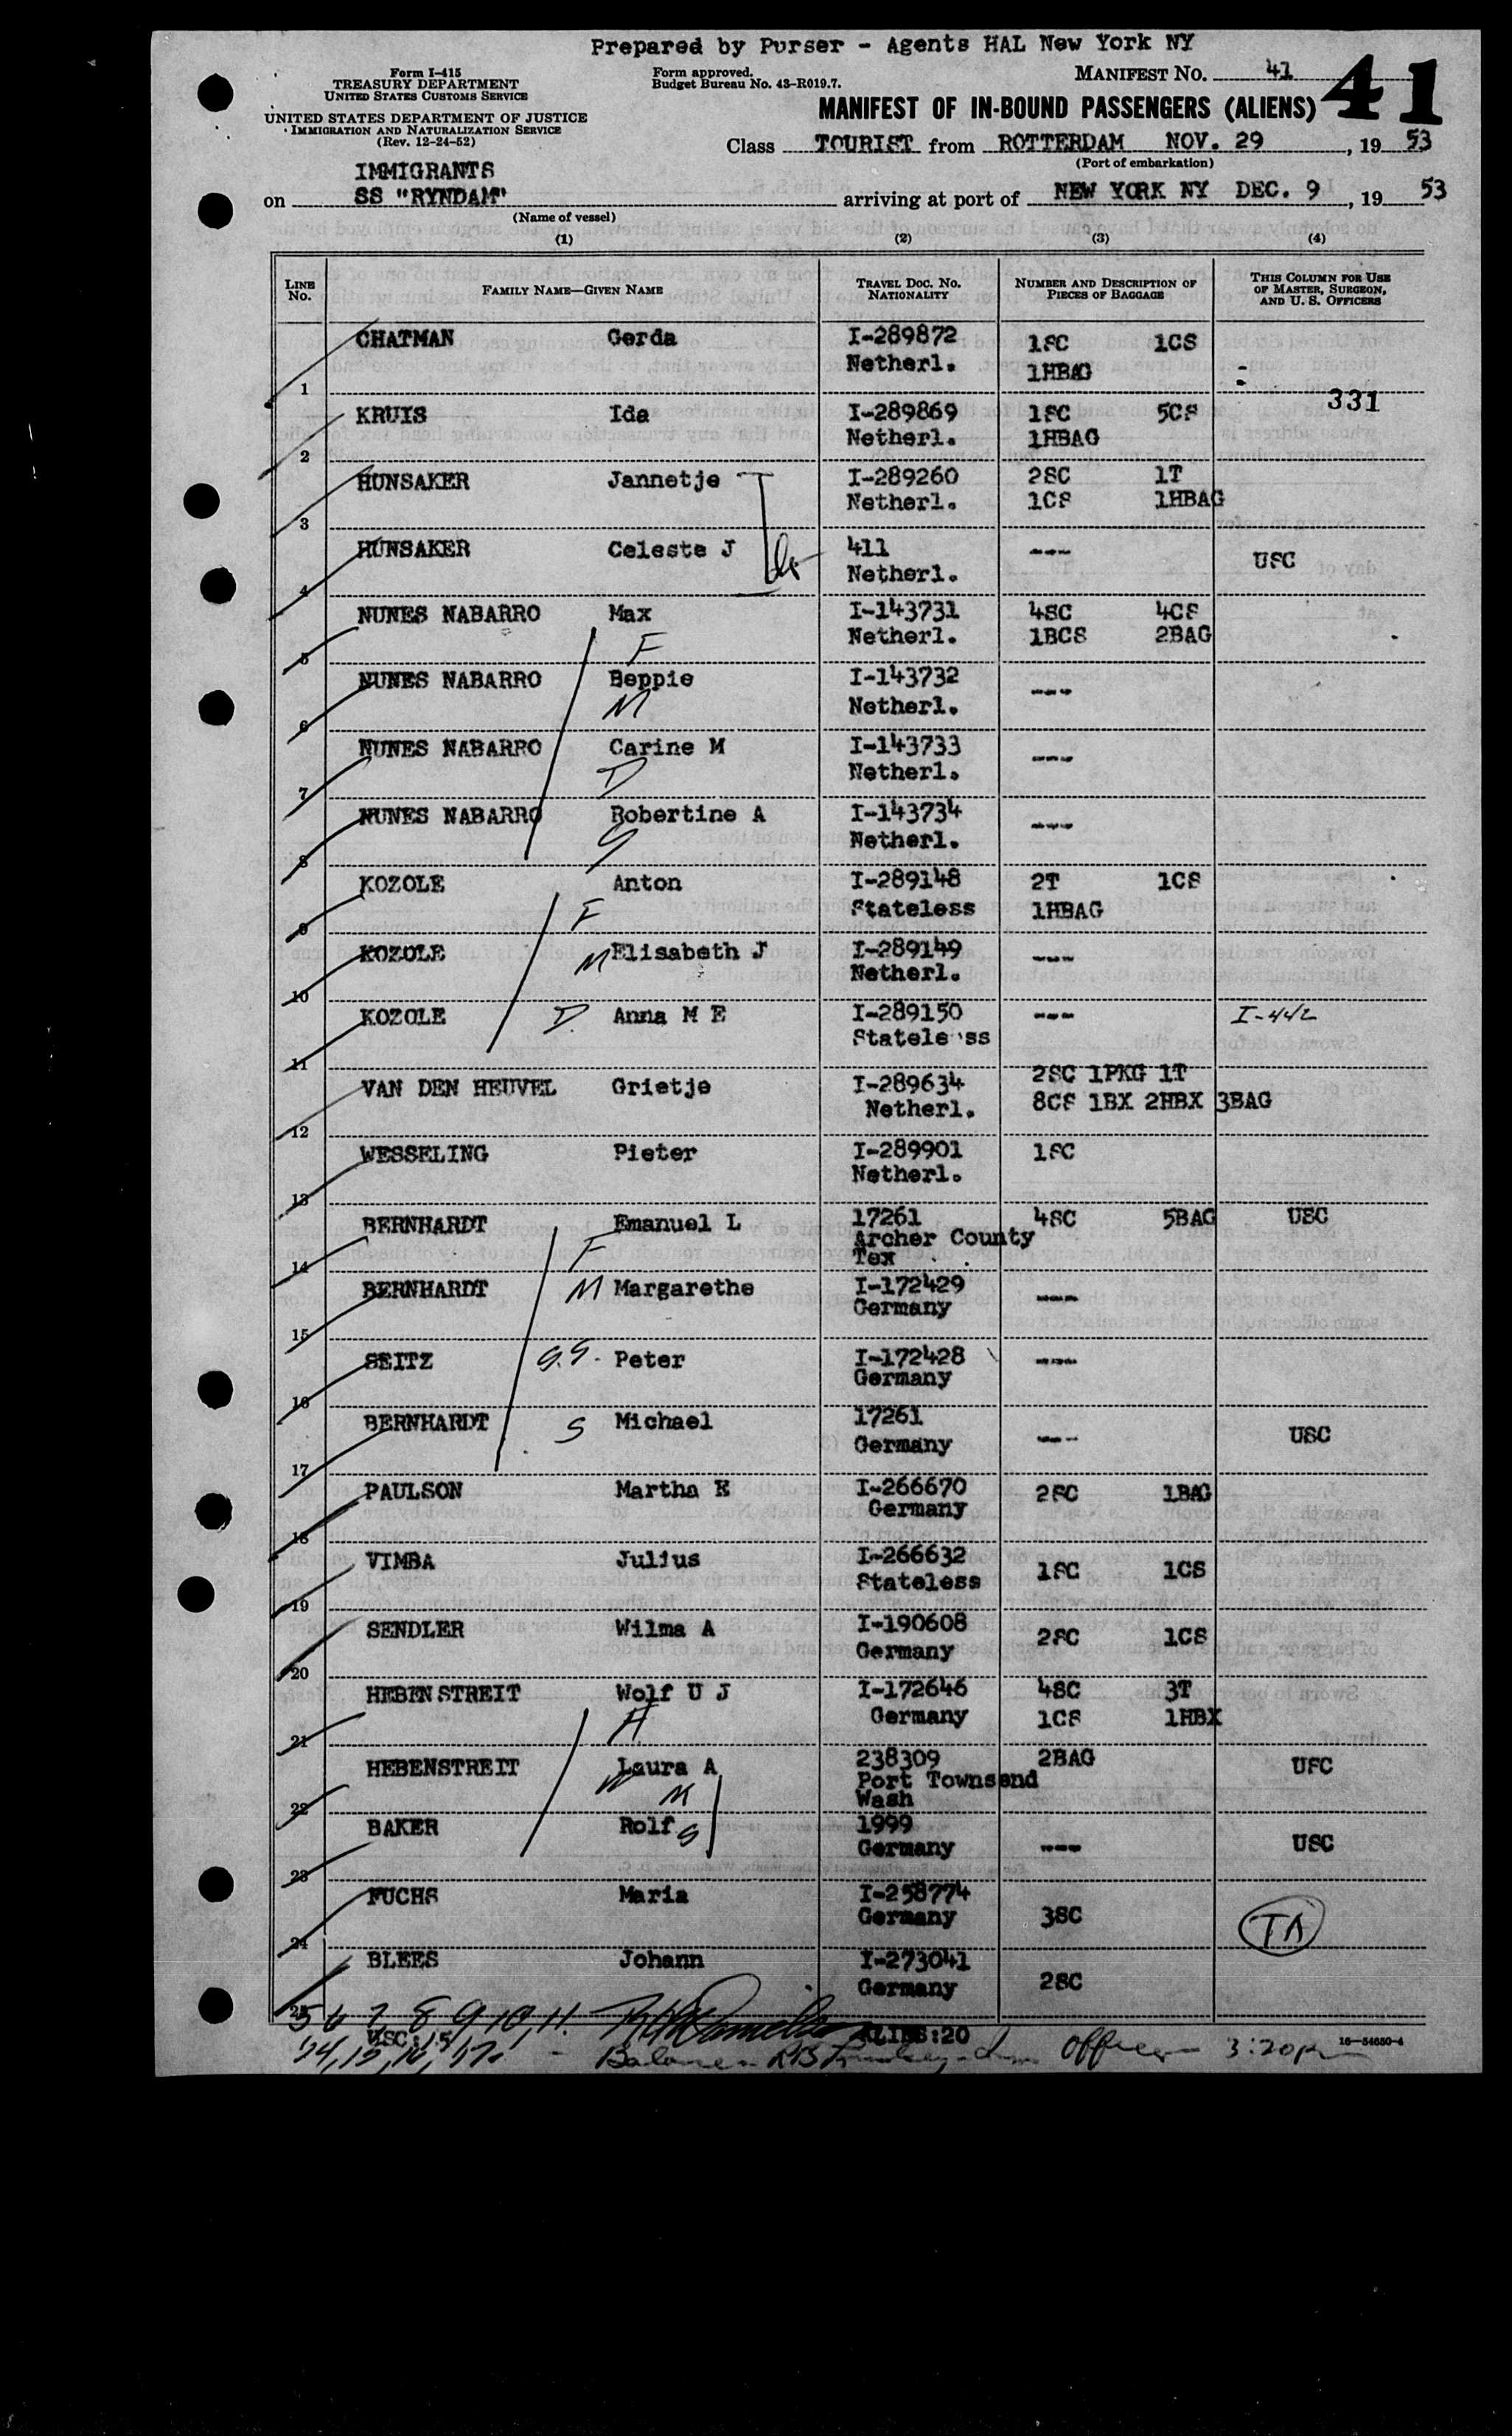 Prepared by Purser - Agents HAL New York NY
Form I-415
TREASURY DEPARTMENT
UNITED STATES CUSTOMS SERVICE
UNITED STATES DEPARTMENT OF JUSTICE
IMMIGRATION AND NATURALIZATION SERVICE
(Rev. 12-24-52)
Form approved.
Budget Bureau No. 43-R019.7.
MANIFEST NO. 41
41
MANIFEST OF IN-BOUND PASSENGERS (ALIENS)
Class TOURIST from ROTTERDAM NOV. 29, 19 53
(Port of embarkation)
IMMIGRANTS
on SS "RYNDAM" arriving at port of NEW YORK NY DEC. 9, 19 53
(Name of vessel)
(1) (2) (3) (4)
LINE NO. FAMILY NAME—GIVEN NAME TRAVEL DOC. NO. NATIONALITY NUMBER AND DESCRIPTION OF PIECES OF BAGGAGE THIS COLUMN FOR USE OF MASTER, SURGEON, AND U. S. OFFICERS
CHATMAN Gerda I-289872 1SC 1CS
1 Netherl. 1HBAG
331
KRUIS Ida I-289869 1SC 5CS
2 Netherl. 1HBAG
HUNSAKER Jannetje I-289260 2SC 1T
3 Netherl. 1CS 1HBAG
HUNSAKER Celeste J 411 --- USC
4 Netherl.
NUNES NABARRO Max I-143731 4SC 4CS
5 F Netherl. 1BCS 2BAG
NUNES NABARRO Beppie I-143732 ---
6 M Netherl.
NUNES NABARRO Carine M I-143733 ---
7 D Netherl.
NUNES NABARRO Robertine A I-143734 ---
8 Netherl.
KOZOLE Anton I-289148 2T 1CS
9 F Stateless 1HBAG
KOZOLE M Elisabeth J I-289149 ---
10 Netherl.
KOZOLE D. Anna M E I-289150 --- I-442
11 Stateless
VAN DEN HEUVEL Grietje I-289634 2SC 1PKG 1T
12 Netherl. 8CS 1BX 2HBX 3BAG
WESSELING Pieter I-289901 1SC
13 Netherl.
BERNHARDT Emanuel L 17261 4SC 5BAG USC
14 F Archer County
Tex
BERNHARDT M Margarethe I-172429 ---
15 Germany
SEITZ Peter I-172428 ---
16 Germany
BERNHARDT S Michael 17261 --- USC
17 Germany
PAULSON Martha E I-266670 2SC 1BAG
18 Germany
VIMBA Julius I-266632 1SC 1CS
19 Stateless
SENDLER Wilma A I-190608 2SC 1CS
20 Germany
HEBENSTREIT Wolf U J I-172646 4SC 3T
21 H Germany 1CS 1HBX
HEBENSTREIT Laura A 238309 2BAG USC
22 W M Port Townsend
Wash
BAKER Rolf S 1999 --- USC
23 Germany
FUCHS Maria I-258774 3SC TA
24 Germany
BLEES Johann I-273041 2SC
25 Germany
5 6 7, 8 9, 10, 11.
USC: 5 ALIENS:20
14, 15, 16, 17. - Balance - Officer 3:20 pm
16—54650-4